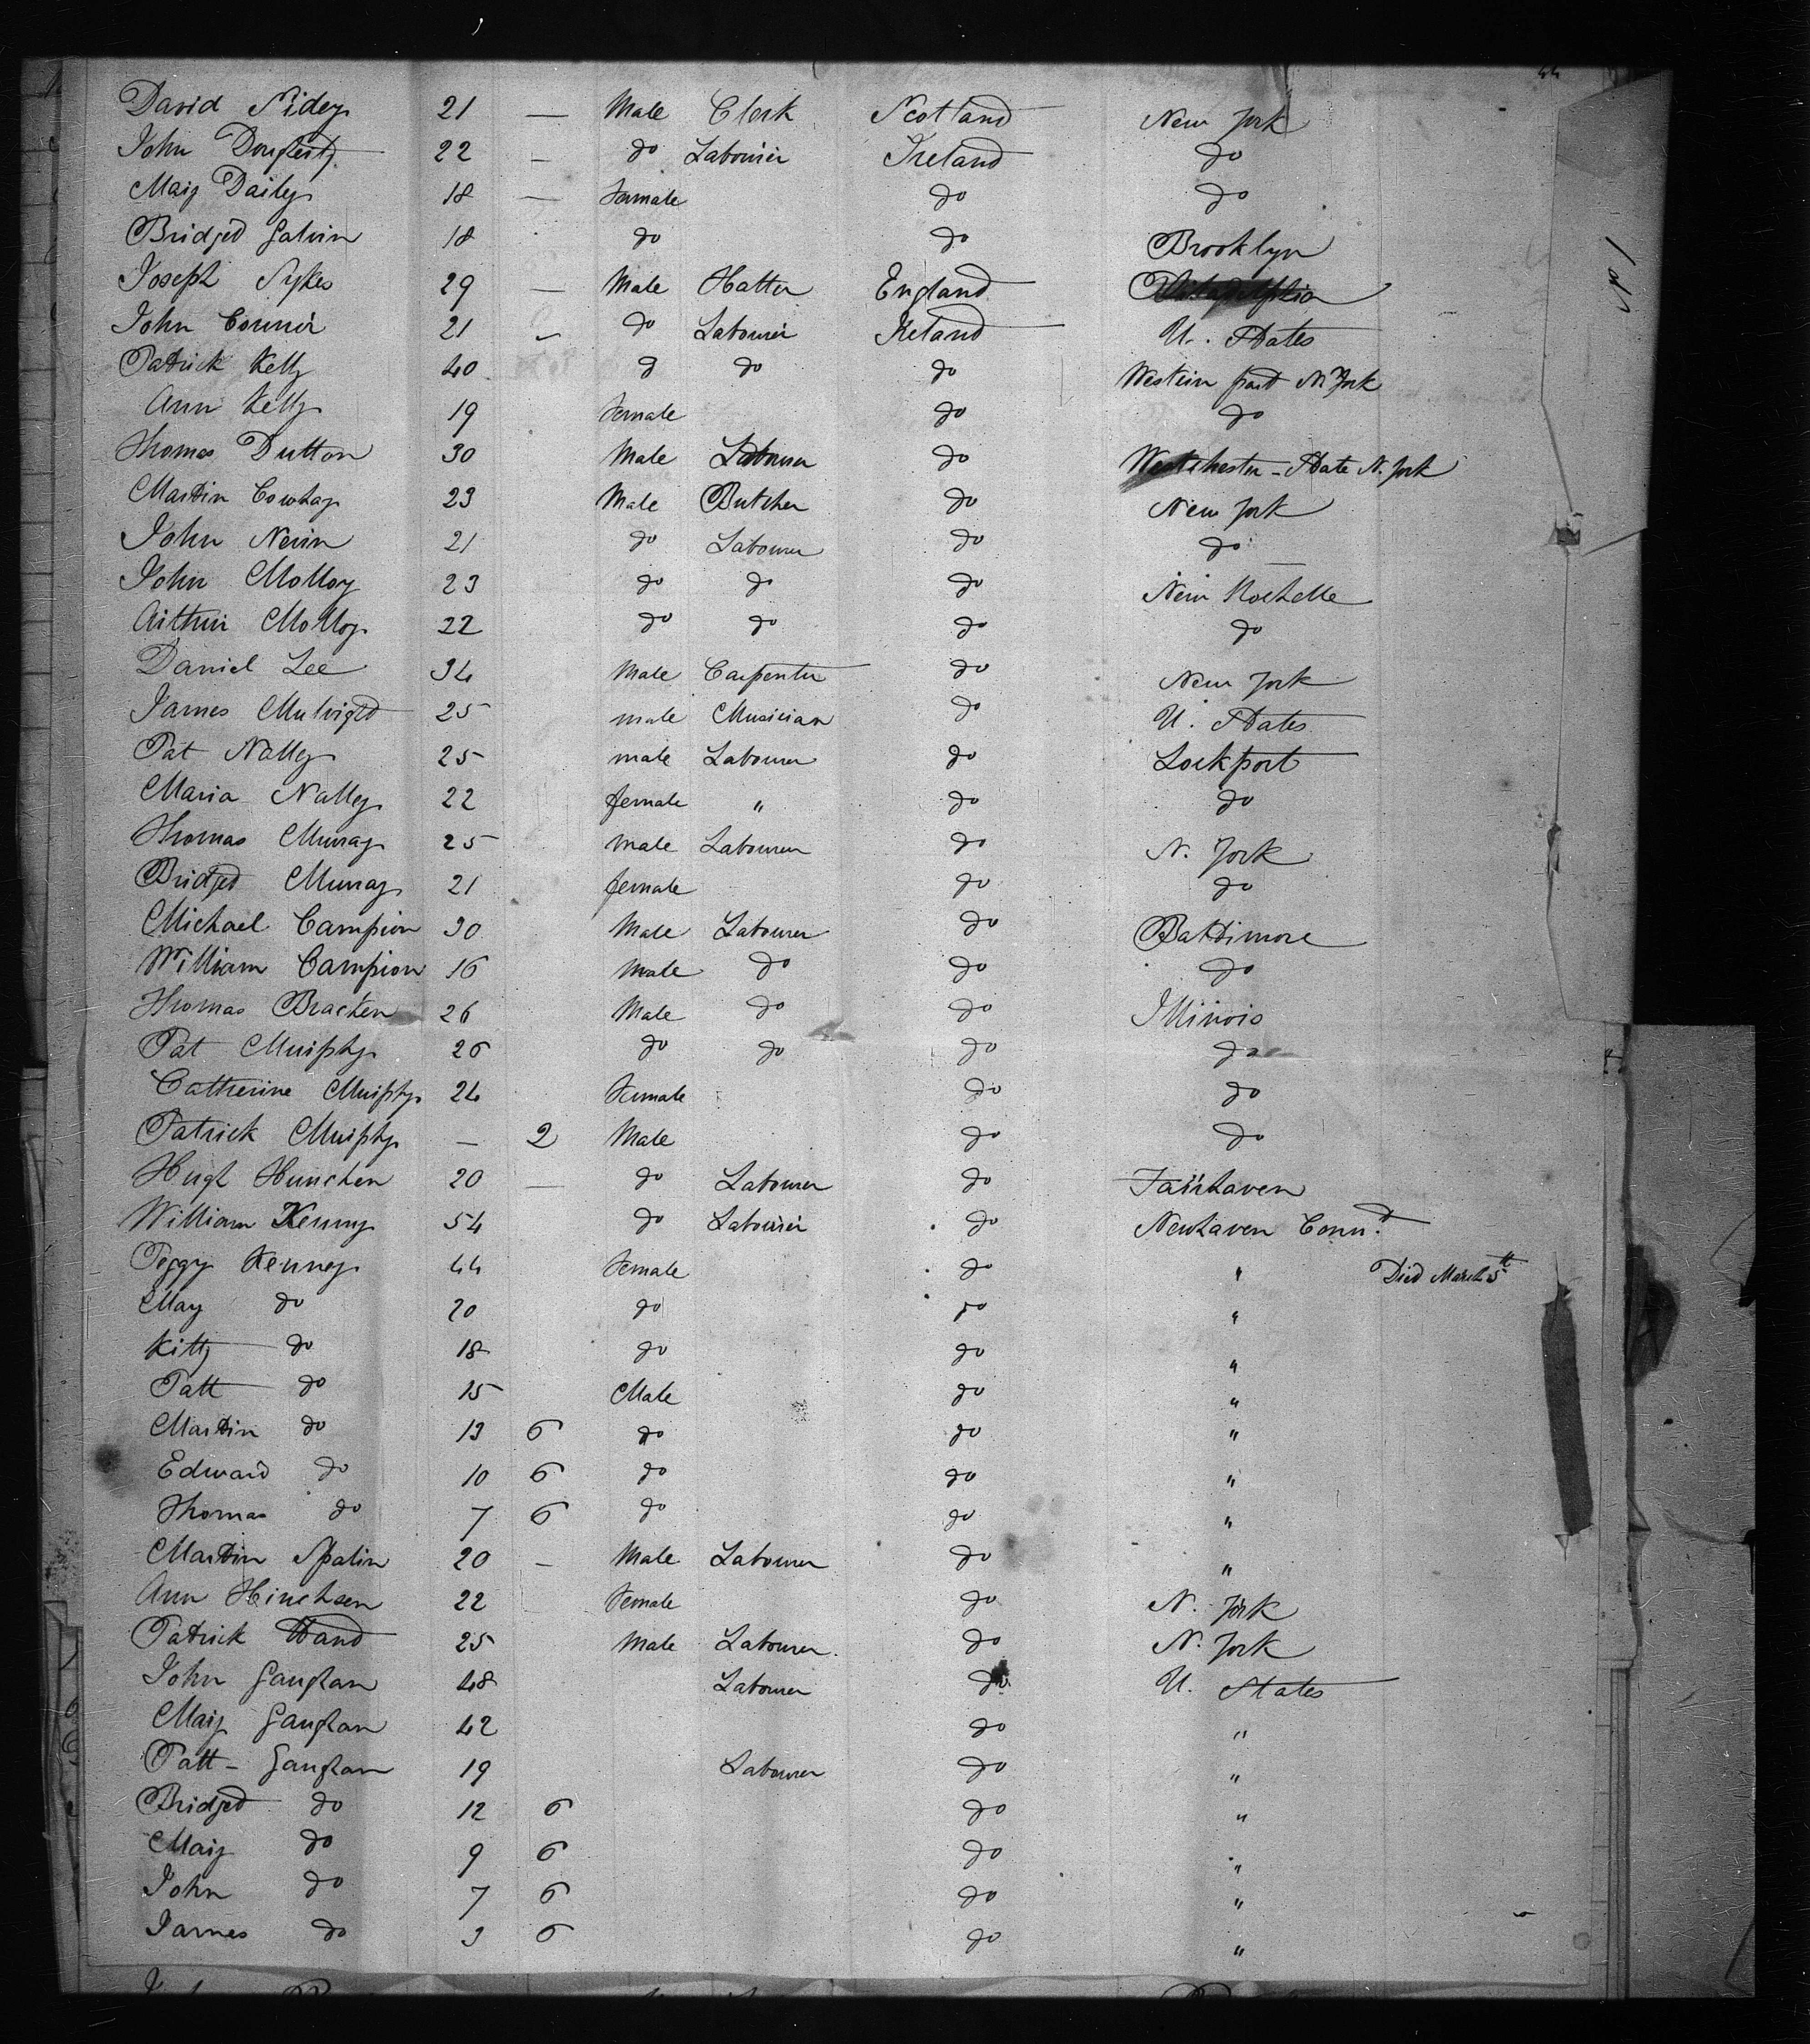 David Sidey 21 — Male Clerk Scotland New York
John Dougherty 22 — do Labourer Ireland do
Mary Dailey 18 — Female do do
Bridged Galvin 18 do do Brooklyn
Joseph Sykes 29 — Male Hatter England Philadelphia
John Connor 21 - do Labourer Ireland U. States
Patrick Kelly 40 d do do Western part N. York
Ann Kelly 19 Female do do
Thomas Dutton 30 Male Labourer do Westchester - State N. York
Martin Cowhay 23 Male Butcher do New York
John Nevin 21 do Labourer do do
John Molloy 23 do do do New Rochelle
Arthur Molloy 22 do do do do
Daniel Lee 34 Male Carpenter do New York
James Mulright 25 male Musician do U. States
Pat Nalley 25 male Labourer do Lockport
Maria Nalley 22 female " do do
Thomas Murray 25 male Labourer do N. York
Bridged Murray 21 female do do
Michael Campion 30 Male Labourer do Baltimore
William Campion 16 Male do do do
Thomas Bracken 26 Male do do Illinois
Pat Murphy 26 do do do do
Catherine Murphy 24 Female do do
Patrick Murphy — 2 Male do do
Hugh Hunchen 20 — do Labourer do Fairhaven
William Kenny 54 do Labourer do Newhaven Conn.
Peggy Kenney 44 Female do " Died March 5th
May do 20 do do "
Kitty do 18 do do "
Patt do 15 Male do "
Martin do 13 6 do do "
Edward do 10 6 do do "
Thomas do 7 6 do do "
Martin Spalin 20 - Male Labourer do "
Ann Hinchsen 22 Female do N. York
Patrick Wand 25 Male Labourer do N. York
John Gaughan 48 Labourer do U. States
Mary Gaughan 42 do "
Patt - Gaughan 19 Labourer do "
Bridged do 12 6 do "
Mary do 9 6 do "
John do 7 6 do "
James do 3 6 do "